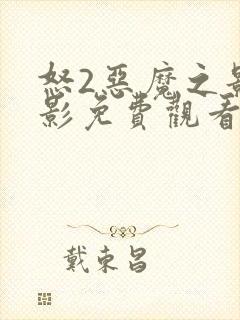 怒2惡魔之影
影免費觀看
戴東昌